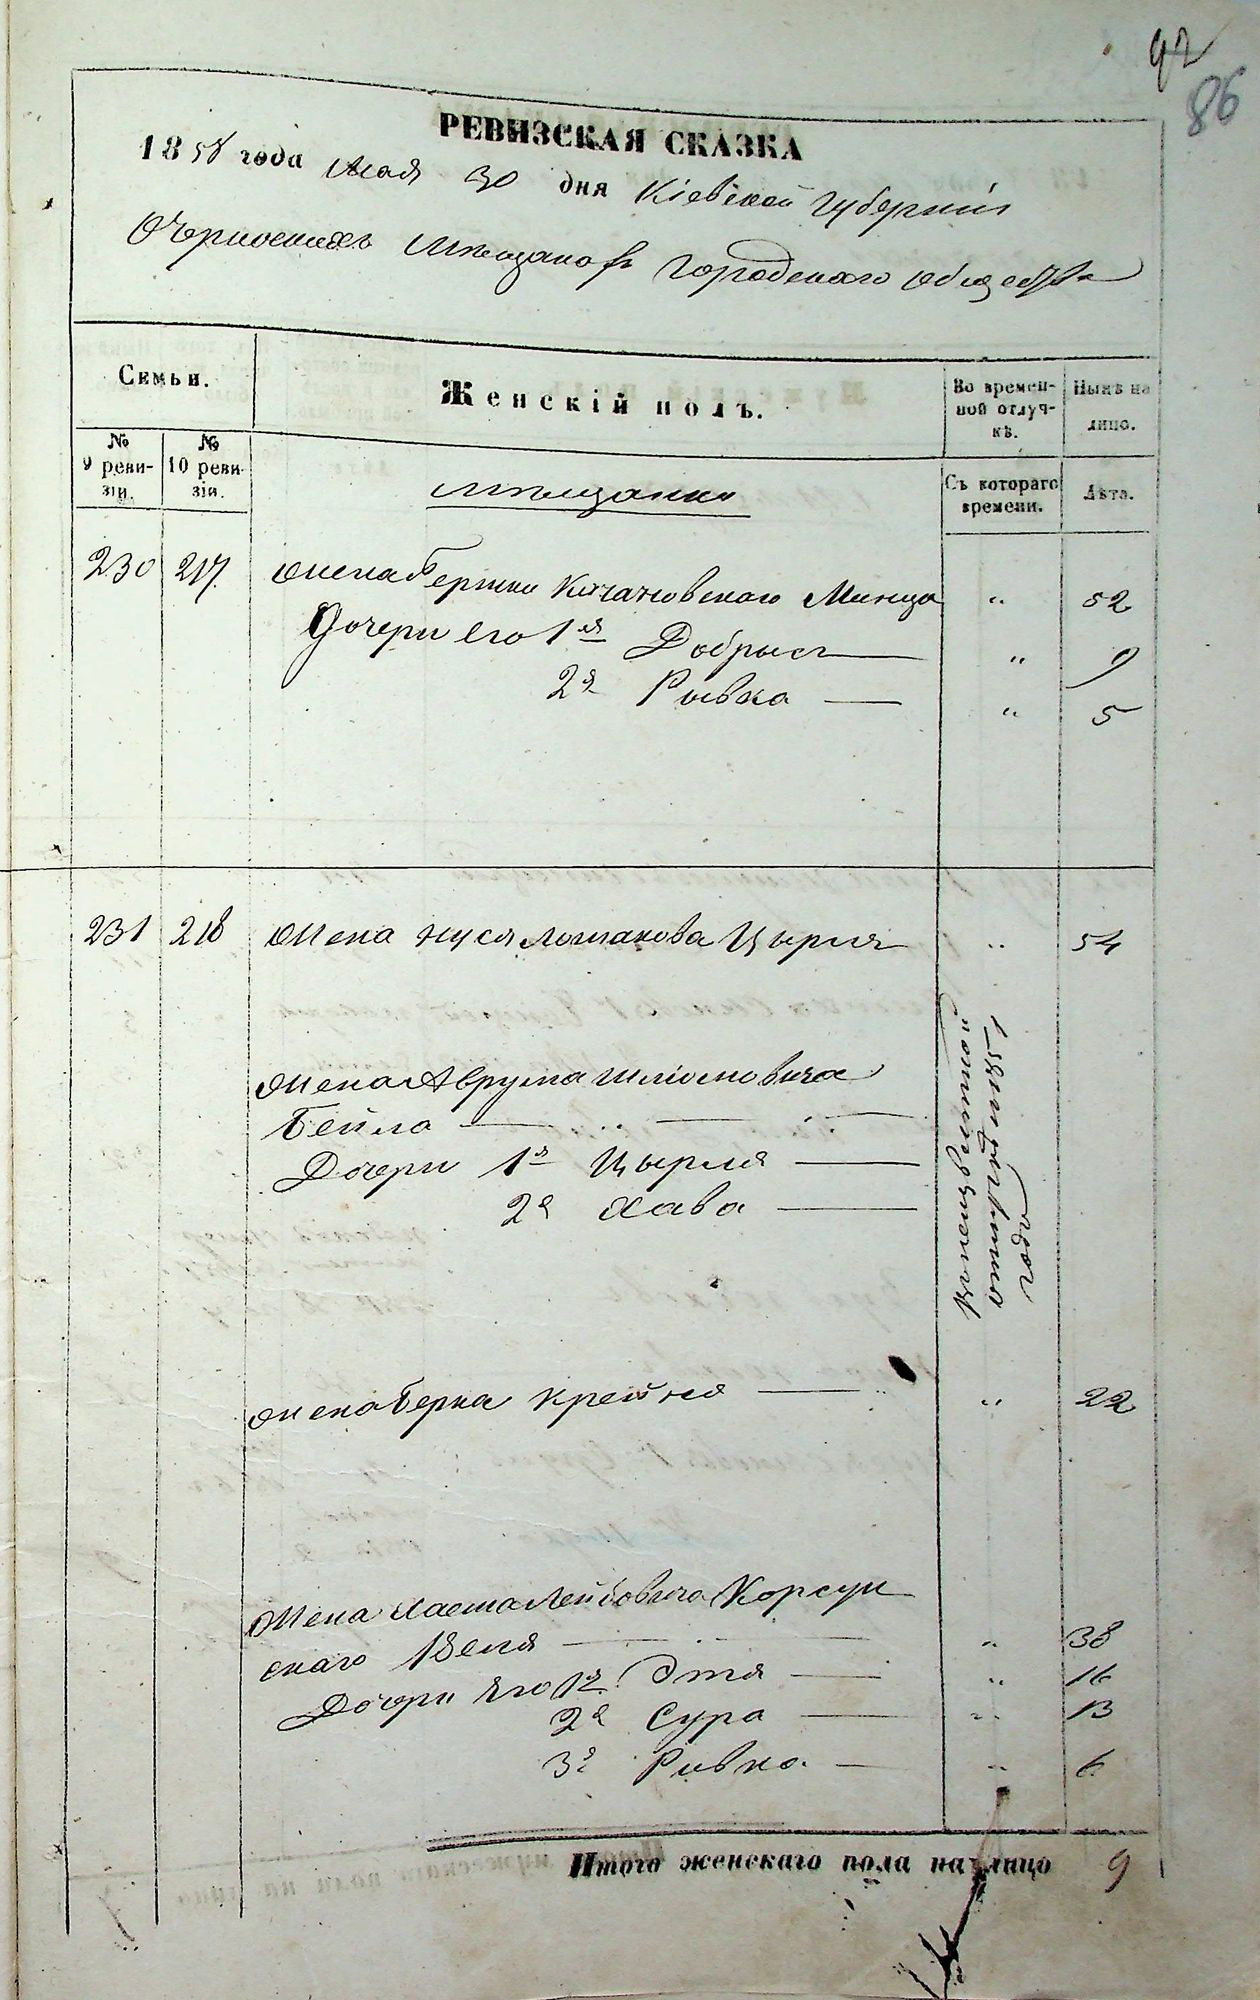 92
86
РЕВИЗСКАЯ СКАЗКА
1858 года Мая 30 дня Кіевской губерніи
О мѣщанахъ городскаго общества
Семьи.
Женскій полъ.
Во времен-
ной отлуч-
кѣ.
Нынѣ на
лицо.
№
9 реви-
зіи.
№
10 реви-
зіи.
Съ котораго
времени.
Лѣта.
мѣщанки
230 217 Жена Берка Качановскаго Минця " 52
Дочери его 1я Добрысь " 9
2я Ривка " 5
231 218 Жена Нуся Цырля " 54
Жена Аврума Шліомовича
Бейла
Дочери 1я Цырля
2я Хава
года
Жена Берка Крейня " 22
Жена Лейбовича Корсун
скаго " 38
Дочери его 1я Этя " 16
2я Сура " 13
3я Ривка " 6
Итого женскаго пола на лицо 9